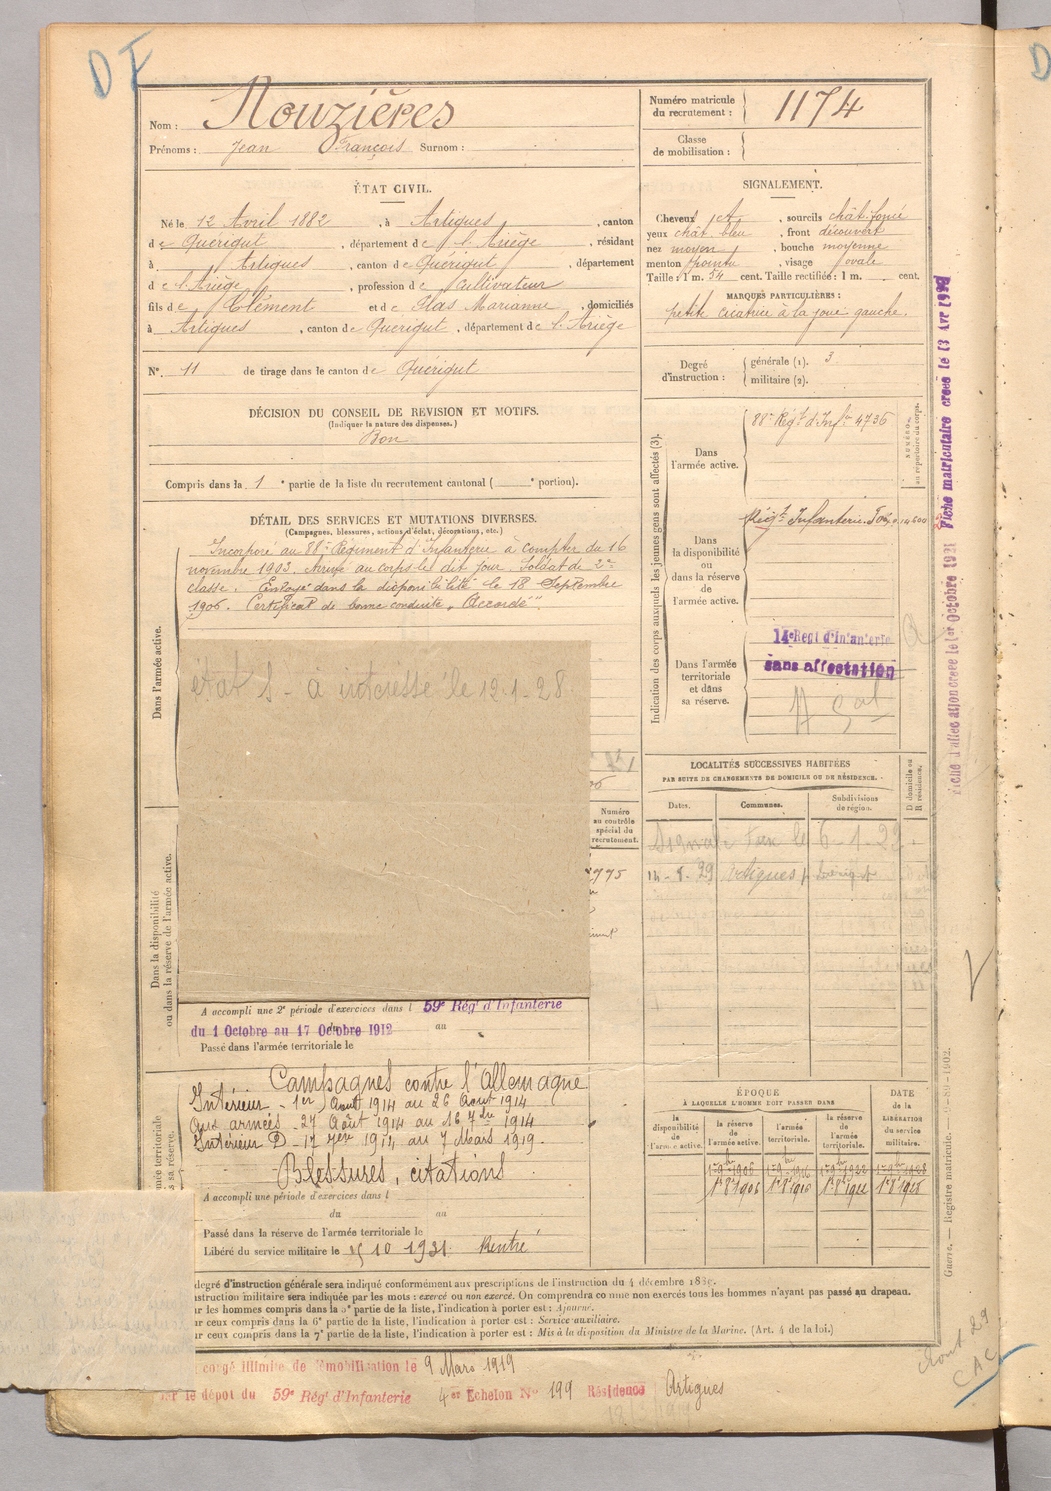 D F
Nom : Rouzières
Prénoms : Jean François Surnom :
Numéro matricule du recrutement : 1174
Classe de mobilisation :
ÉTAT CIVIL.
Né le 12 Avril 1882, à Artigues, canton
de Quérigut, département de l'Ariège, résidant
à Artigues, canton de Quérigut, département
de l'Ariège, profession de Cultivateur
fils de Clément et de Plas Marianne, domiciliés
à Artigues, canton de Quérigut, département de l'Ariège
N° 11 de tirage dans le canton de Quérigut
SIGNALEMENT.
Cheveux ct, sourcils chât. foncé
yeux chât. bleu, front découvert
nez moyen, bouche moyenne
menton pointu, visage ovale
Taille : 1 m. 54 cent. Taille rectifiée : 1 m. cent.
MARQUES PARTICULIÈRES :
petite cicatrice à la joue gauche.
Degré d'instruction :
générale (1). 3
militaire (2).
DÉCISION DU CONSEIL DE REVISION ET MOTIFS.
(Indiquer la nature des dispenses.)
Bon
Compris dans la 1e partie de la liste du recrutement cantonal ( e portion).
DÉTAIL DES SERVICES ET MUTATIONS DIVERSES.
(Campagnes, blessures, actions d'éclat, décorations, etc.)
Incorporé au 88e Régiment d'Infanterie à compter du 16
novembre 1903. Arrivé au corps le dit jour. Soldat de 2e
classe. Envoyé dans la disponibilité le 18 Septembre
1906. Certificat de bonne conduite "Accordé".
Dans l'armée active.
état S - à intéressé le 12-1-28
Dans la disponibilité
ou dans la réserve de l'armée active.
Numéro au contrôle spécial du recrutement.
A accompli une 2e période d'exercices dans l 59e Rég' d'Infanterie
du 1 Octobre au 17 Octobre 1912 au
Passé dans l'armée territoriale le
Campagnes contre l'Allemagne
Intérieur - 1er Août 1914 au 26 Août 1914
Aux armées - 27 Août 1914 au 16 7bre 1914
Intérieur D - 17 7bre 1914 au 7 Mars 1919.
Blessures, citations
A accompli une période d'exercices dans l
du au
Passé dans la réserve de l'armée territoriale le
Libéré du service militaire le 15 10 1931.
Indication des corps auxquels les jeunes gens sont affectés (3).
NUMÉRO au répertoire du corps.
Dans l'armée active.
88e Régt d'Infie 4736
Dans la disponibilité ou dans la réserve de l'armée active.
Régt Infanterie. Foix
Dans l'armée territoriale et dans sa réserve.
14e Regt d'infanterie
sans affectation
LOCALITÉS SUCCESSIVES HABITÉES
PAR SUITE DE CHANGEMENTS DE DOMICILE OU DE RÉSIDENCE.
Dates. Communes. Subdivisions de région. D domicile ou R résidence.
le 6-1-22
14-8-29 Artigues
ÉPOQUE
À LAQUELLE L'HOMME DOIT PASSER DANS
la disponibilité de l'armée active. la réserve de l'armée active. l'armée territoriale. la réserve de l'armée territoriale.
DATE de la LIBÉRATION du service militaire.
Fiche matriculaire créée le 13 Avr
Fiche d'affectation créée le 1er Octobre 1921
Guerre. — Registre matricule.
degré d'instruction générale sera indiqué conformément aux prescriptions de l'instruction du 4 décembre
nstruction militaire sera indiquée par les mots : exercé ou non exercé. On comprendra comme non exercés tous les hommes n'ayant pas passé au drapeau.
ur les hommes compris dans la 5e partie de la liste, l'indication à porter est : Ajourné.
ur ceux compris dans la 6e partie de la liste, l'indication à porter est : Service auxiliaire.
ur ceux compris dans la 7e partie de la liste, l'indication à porter est : Mis à la disposition du Ministre de la Marine. (Art. 4 de la loi.)
congé illimité de démobilisation le 9 Mars 1919
ar le dépot du 59e Rég' d'Infanterie 4er Echelon N° 199 Résidence Artigues
Aout 29
CAC